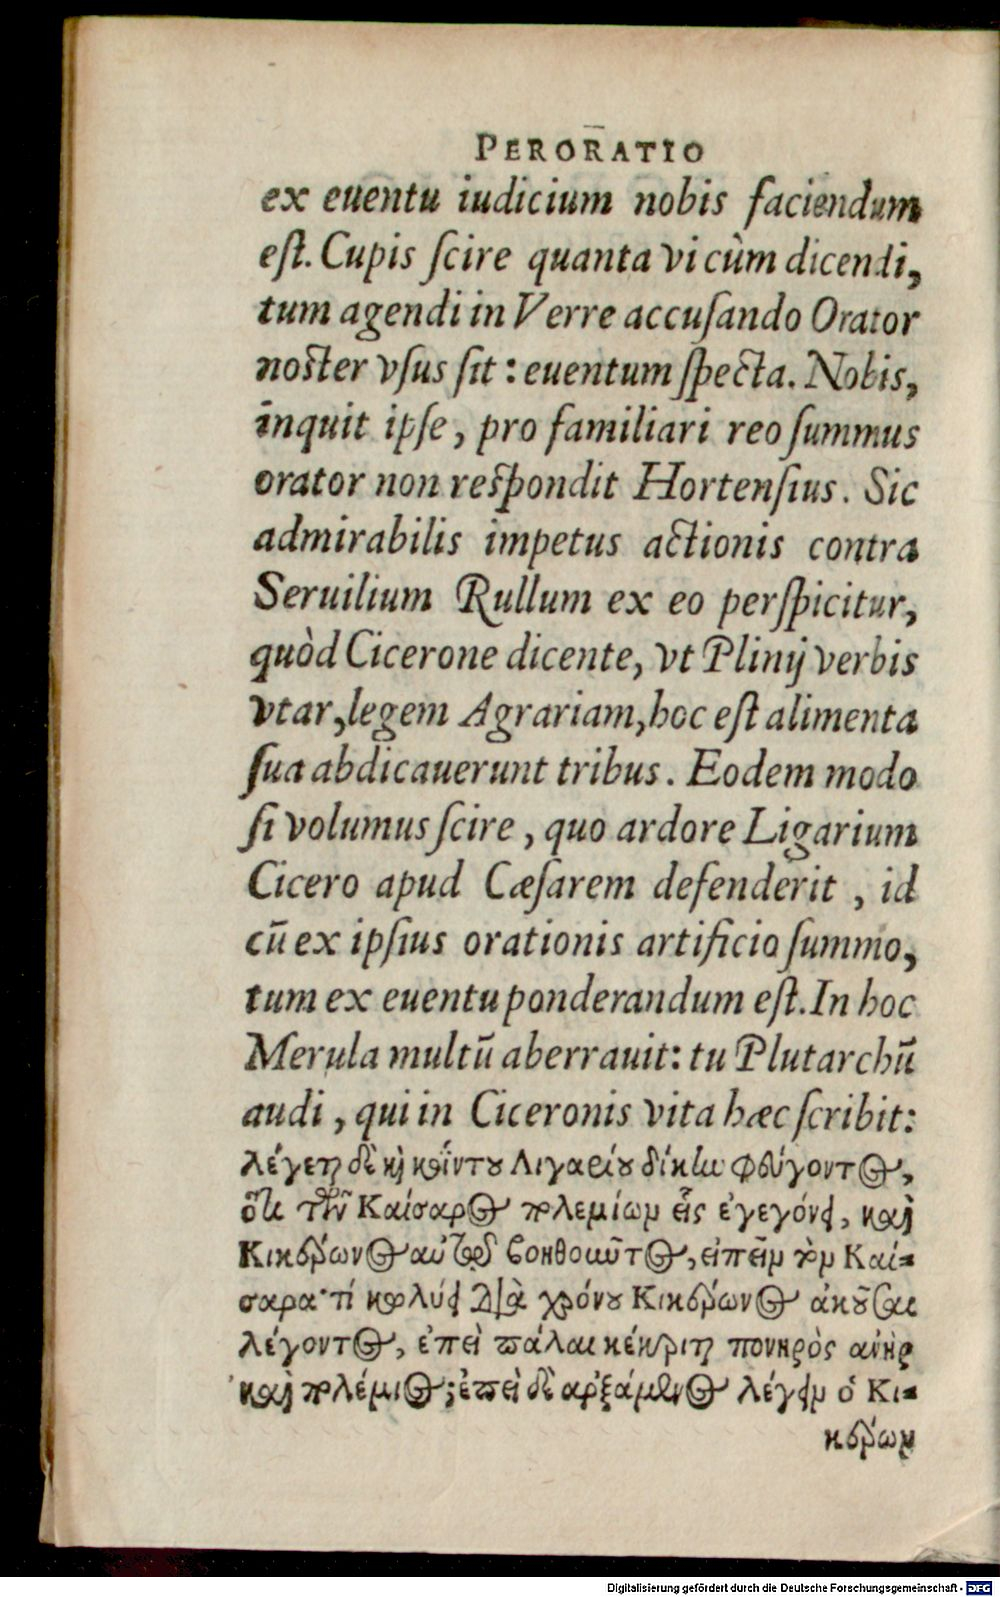 PERORATIO
ex euentu iudicium nobis faciendum
eſt. Cupis ſcire quanta vi cùm dicendi,
tum agendi in Verre accuſando Orator
noſter vſus ſit: euentum ſpecta. Nobis,
inquit ipſe, pro familiari reo ſummus
orator non reſpondit Hortenſius. Sic
admirabilis impetus actionis contra
Seruilium Rullum ex eo perſpicitur,
quòd Cicerone dicente, vt Plinij verbis
vtar, legem Agrariam, hoc eſt alimenta
ſua abdicauerunt tribus. Eodem modo
ſi volumus ſcire, quo ardore Ligarium
Cicero apud Cæſarem defenderit, id
cū ex ipſius orationis artificio ſummo,
tum ex euentu ponderandum eſt. In hoc
Merula multū aberrauit: tu Plutarchū
audi, qui in Ciceronis vita hæc ſcribit:
λέγεται δὲ καὶ κοΐντου Λιγαρίου δίκην φεύγοντος,
ὅτι τῶν Καίσαρος πολεμίων εἷς ἐγεγόνει, καὶ
Κικέρωνος αὐτῷ βοηθοῦντος, εἰπεῖν τὸν Καί-
σαρα· τί κωλύει διὰ χρόνου Κικέρωνος ἀκοῦσαι
λέγοντος, ἐπεὶ πάλαι κέκριται πονηρὸς ἀνὴρ
καὶ πολέμιος; ἐπεὶ δὲ ἀρξάμενος λέγειν ὁ Κι-
κέρων
Digitalisierung gefördert durch die Deutsche Forschungsgemeinschaft - DFG